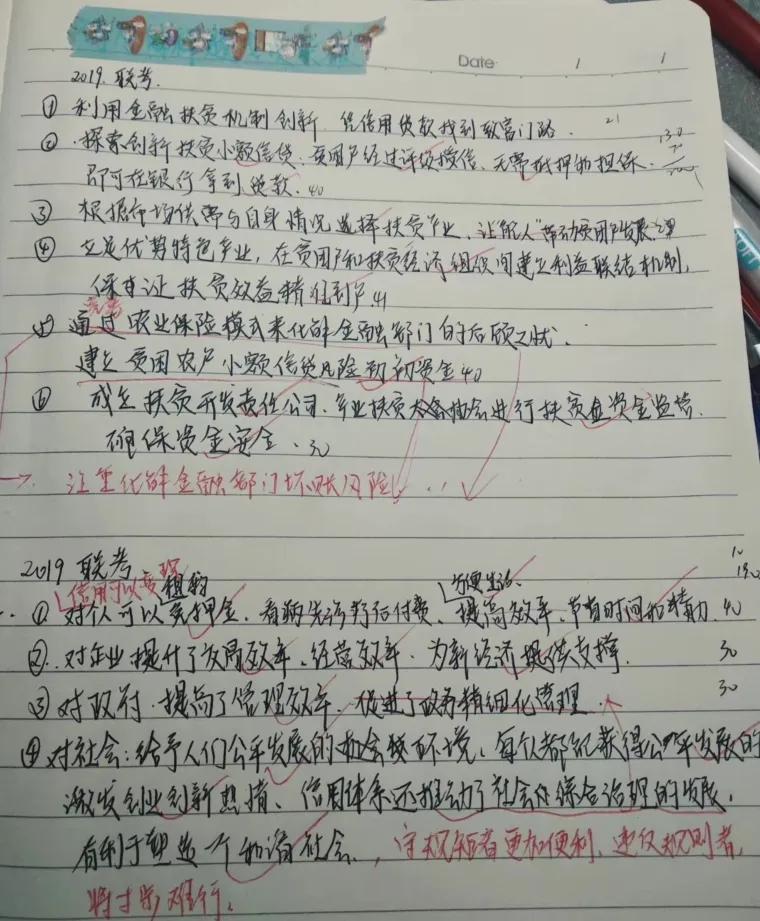 Date / /
2019.联考.
① 利用金融扶贫机制创新 凭信用贷款找到致富门路. 21
② 探索创新扶贫小额信贷.贫困户经过评级授信、无需抵押和担保. 130
即可在银行拿到贷款. 40
③ 根据市场供需与自身情况选择扶贫产业、让"能人"带动贫困户发展.
④ 立足优势特色产业,在贫困户和扶贫经济组织间建立利益联结机制,
保证扶贫效益精准到户 41
完善
⑤ 通过农业保险模式来化解金融部门的后顾之忧.
建立贫困农户小额信贷风险 资金 40
⑥ 成立扶贫开发责任公司、产业扶贫协会进行扶贫资金监管.
确保资金安全. 30
→. 注重化解金融部门坏账风险
2019 联考
信用可以变现 租购 方便生活.
① 对个人可以免押金、看病先诊疗后付费、提高效率、节省时间和精力. 40
②. 对企业提升了发展效率、经营效率.为新经济提供支撑. 30
③ 对政府.提高了管理效率.促进了政务精细化管理. 30
④ 对社会:给予人们公平发展的机会环境、每个人都能获得公平发展的
激发创业创新热情、信用体系还推动了社会综合治理的发展.
有利于塑造一个和谐社会.,守规矩者更加便利、违反规则者,
将寸步难行.